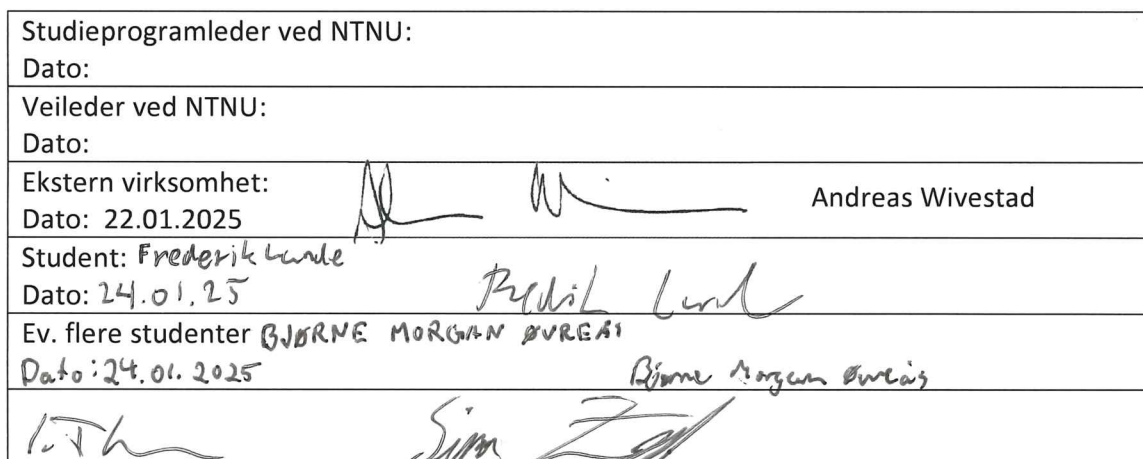 Studieprogramleder ved NTNU:
Dato:
Veileder ved NTNU:
Dato:
Ekstern virksomhet:
Andreas Wivestad
Dato: 22.01.2025
Student: Frederik Lunde
Dato: 24.01.25
Ev. flere studenter BJØRNE MORGAN ØVREÅS
Dato: 24.01.2025
Bjørne Morgan Øvreås